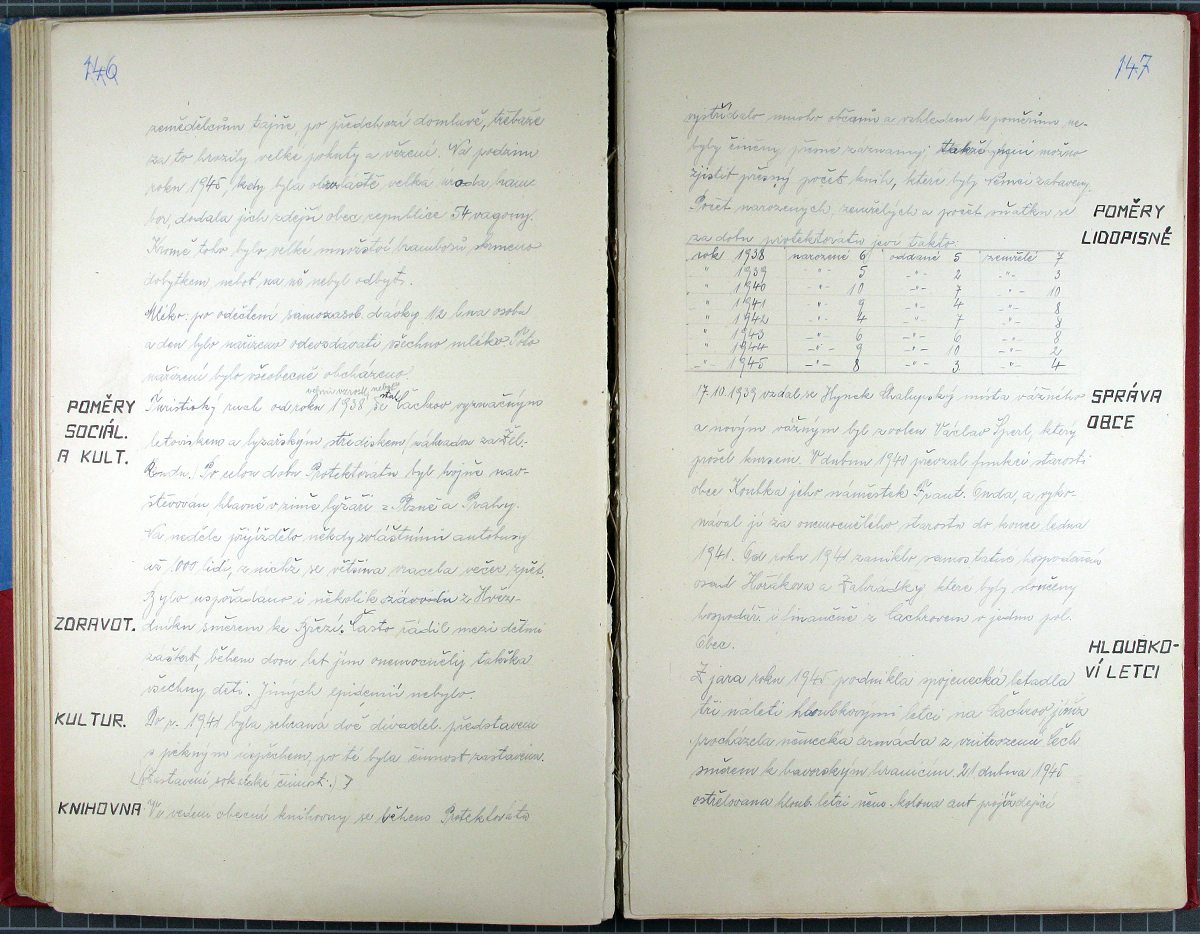 146
zemědělcům tajně, po předchozí domluvě, třebaže
za to hrozily velké pokuty a vězení. Na podzim
roku 1945, kdy byla obzvláště velká úroda bram
bor, dodala jich zdejší obec republice 54 vagony.
Kromě toho bylo velké množství bramborů krmeno
dobytkem, neboť na ně nebyl odbyt.
Mléko: po odečtení samozásob. dávky 1/2 l na osobu
a den bylo nařízeno odevzdávati všechno mléko. Toto
nařízení bylo všeobecně obcházeno.
POMĚRY
SOCIÁL.
A KULT.
Turistický ruch od roku 1938 se stal Čachrov význačným
letoviskem a lyžařským střediskem, náhradou za Žel.
Rudu. Po celou dobu Protektorátu byl hojně nav-
štěvován hlavně v zimě lyžaři z Plzně a Prahy.
Na neděle přijíždělo někdy zvláštními autobusy
až 1.000 lidí, z nichž se většina vracela večer zpět.
Bylo uspořádáno i několik závodů z Hvěz-
ZDRAVOT.
dníku směrem ke Březí. Často řádil mezi dětmi
záškrt, během dvou let jím onemocněly takřka
všechny děti. Jiných epidemií nebylo.
KULTUR.
Do r. 1941 byla sehrána dvě divadel. představení
s pěkným úspěchem, po té byla činnost zastavena.
(Zastavení sokolské činnosti.)
KNIHOVNA
Ve vedení obecní knihovny se během Protektorátu
147
vystřídalo mnoho občanů a vzhledem k poměrům ne-
byly činěny přesné záznamy, takže není možno
zjistit přesný počet knih, které byly Němci zabaveny.
POMĚRY
LIDOPISNÉ
Počet narozených, zemřelých a počet sňatků se
za dobu protektorátu jeví takto:
rok 1938 narozené 6 oddané 5 zemřelé 7
" 1939 -"- 5 -"- 2 -"- 3
" 1940 -"- 10 -"- 7 -"- 10
" 1941 -"- 9 -"- 4 -"- 8
" 1942 -"- 4 -"- 7 -"- 8
" 1943 -"- 6 -"- 6 -"- 8
" 1944 -"- 9 -"- 10 -"- 2
-"- 1945 -"- 8 -"- 3 -"- 4
SPRÁVA
OBCE
17.10.1939 vzdal se Hynek Chalupský místa vážného
a novým vážným byl zvolen Václav Šperl, který
prošel kursem. V dubnu 1940 převzal funkci starosti
obce Koubka jeho náměstek Frant. Onda, a vyko-
nával ji za onemocnělého starostu do konce ledna
1941. Od roku 1941 zaniklo samostatné hospodaření
osad Hořákova a Zahrádky které byly sloučeny
hospodář. i finančně s Čachrovem v jednu pol.
Obec.
HLOUBKO-
VÍ LETCI
Z jara roku 1945 podnikla spojenecká letadla
tři nálety hloubkovými letci na Čachrov jímž
procházela německá armáda z vnitrozemí Čech
směrem k bavorským hranicím. 21 dubna 1945
ostřelována hloub. letci něm. kolona aut přijíždějící